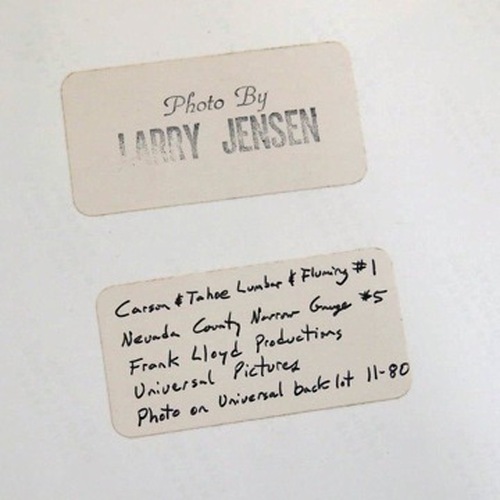 Photo By
LARRY JENSEN
Carson & Tahoe Lumber & Fluming #1
Nevada County Narrow Gauge #5
Frank Lloyd Productions
Universal Pictures
Photo on Universal back lot 11-80